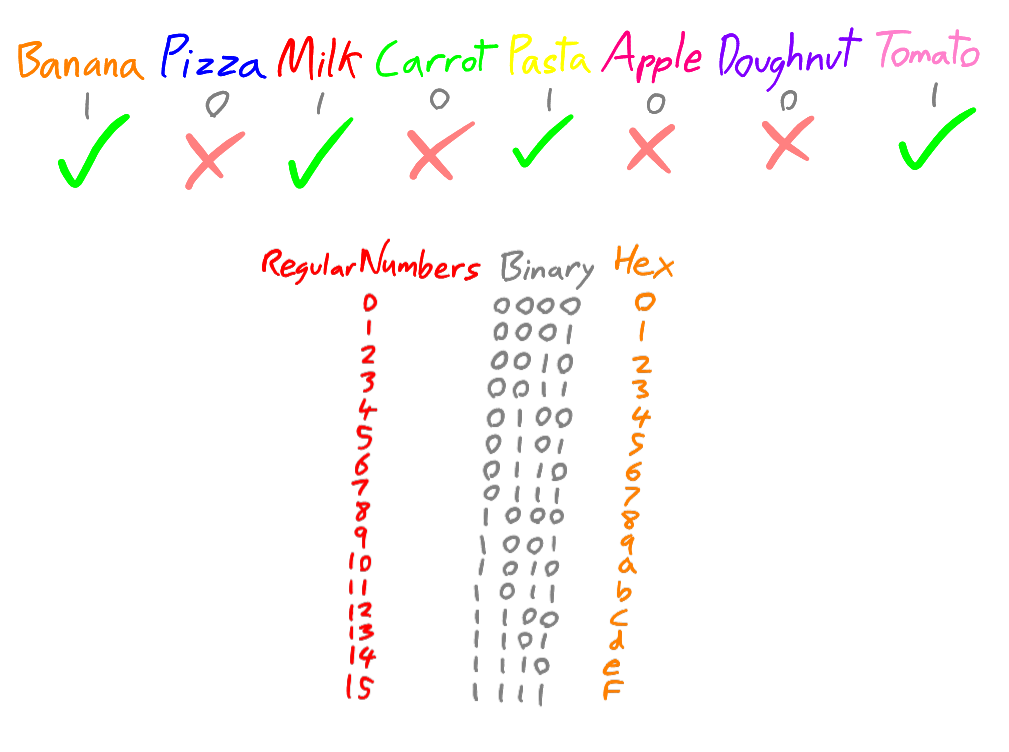 Banana Pizza Milk Carrot Pasta Apple Doughnut Tomato
1 0 1 0 1 0 0 1
Regular Numbers Binary Hex
0 0000 0
1 0001 1
2 0010 2
3 0011 3
4 0100 4
5 0101 5
6 0110 6
7 0111 7
8 1000 8
9 1001 9
10 1010 a
11 1011 b
12 1100 c
13 1101 d
14 1110 e
15 1111 F